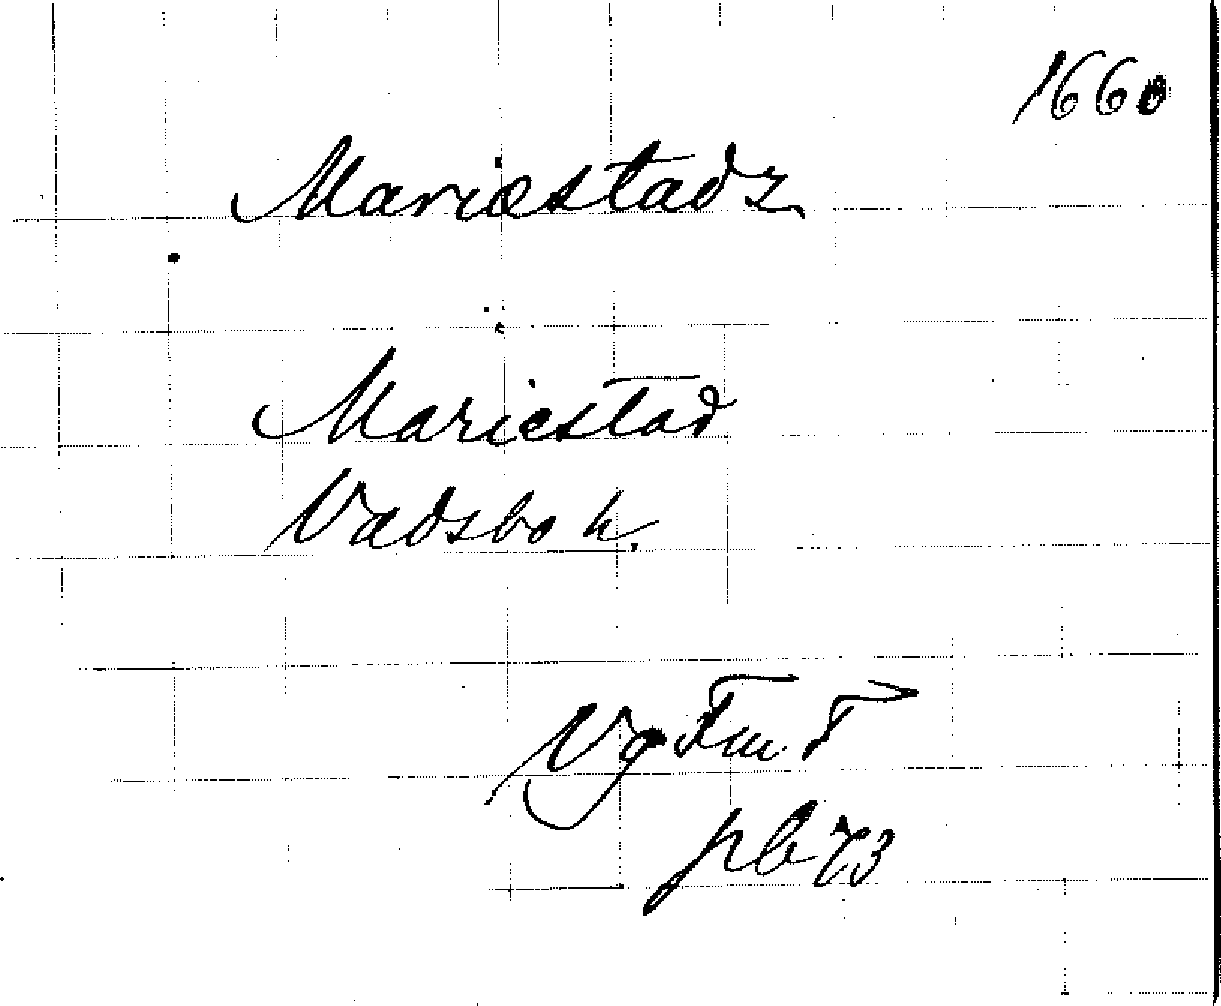 1660
Mariæstadz
Mariestad
Vadsbo h.
Vg Fm T
pb 73